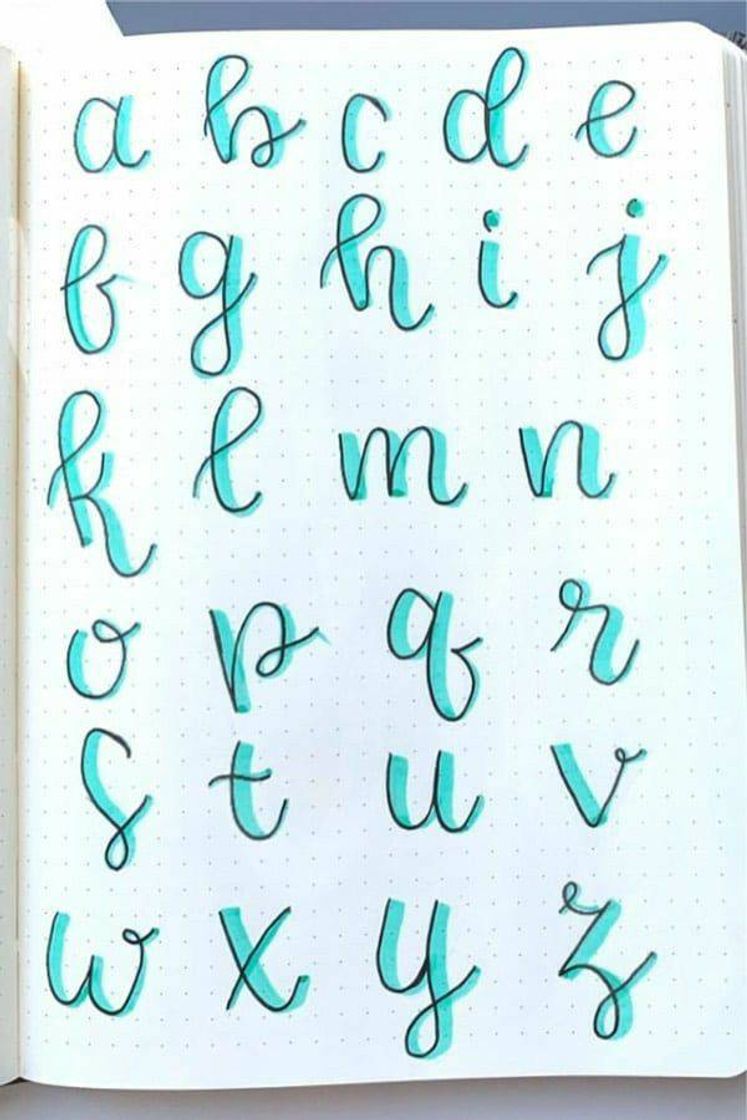 a b c d e
f g h i j
k l m n
o p q r
s t u v
w x y z